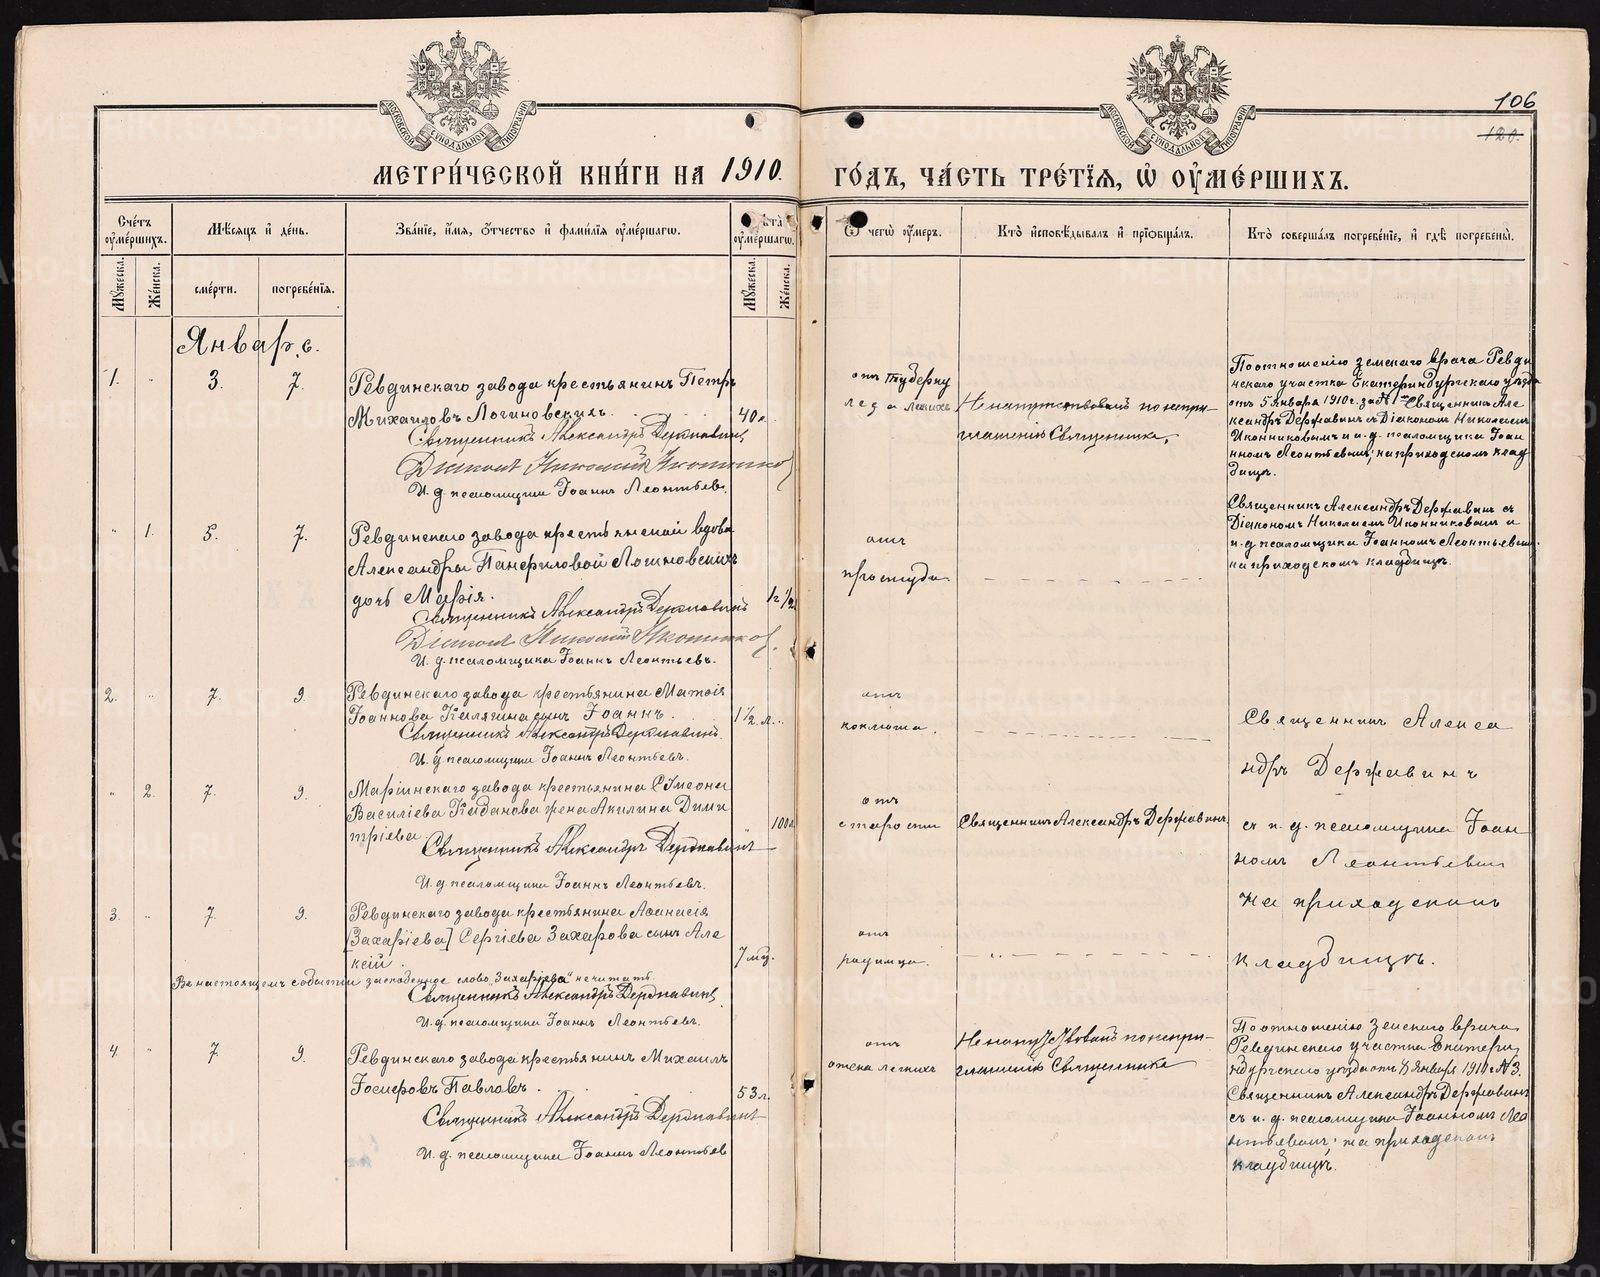 106
120.
МЕТРИ́ЧЕСКОЙ КНИ́ГИ НА 1910.
ГО́ДЪ, ЧА́СТЬ ТРЕ́ТІЯ, Ѿ ОУ҆МЕ́РШИХЪ.
Сче́тъ оу҆ме́ршихъ.
Мѣ́сяцъ и҆ де́нь.
Зва́ніе, и҆́мя, ѻ҆́тчество и҆ фами́лія оу҆ме́ршагѡ.
оу҆ме́ршагѡ.
Ѿ чегѡ̀ оу҆́меръ.
Кто̀ и҆сповѣ́дывалъ и҆ прїѡбща́лъ.
Кто̀ соверша́лъ погребе́ніе, и҆ гдѣ̀ погребены̀.
Му́жеска.
Же́нска.
сме́рти.
погребе́нїя.
Му́жеска.
Же́нска.
Январь.
1. " 3. 7.
Ревдинскаго завода крестьянинъ Петръ
Михаиловъ Логиновскихъ.
40 л.
Священникъ Александръ Державинъ
Діаконъ Николай Иконников
И. д. псаломщика Іоаннъ Леонтьев.
отъ туберку
леза легкихъ
Не напутствованъ по непри-
глашенію Священника.
По отношенію земскаго врача Ревди
нскаго участка Екатеринбургскаго уѣзда
отъ 5 Января 1910 г. за № 1 Священникъ Але
ксандръ Державинъ съ Діакономъ Николаемъ
Иконниковымъ и и. д. псаломщика Іоан
номъ Леонтьевымъ; на приходскомъ клад
бищѣ.
" 1. 5. 7.
Ревдинскаго завода крестьянской вдовы
Александры Панфиловой Логиновскихъ
дочь Марія.
1 г. 1/2
Священникъ Александръ Державинъ
Діаконъ Николай Иконников.
И. д. псаломщика Іоаннъ Леонтьевъ.
отъ
простуды
Священникъ Александръ Державинъ съ
Діакономъ Николаемъ Иконниковымъ и
и. д. псаломщика Іоанномъ Леонтьевымъ
на приходскомъ кладбищѣ.
2. " 7. 9.
Ревдинскаго завода крестьянина Матѳія
Іоаннова Килягина сынъ Іоаннъ.
1 1/2 л.
Священникъ Александръ Державинъ.
И. д. псаломщика Іоаннъ Леонтьевъ.
отъ
коклюша.
Священникъ Алекса
ндръ Державинъ
съ и. д. псаломщика Іоан
номъ Леонтьевымъ
на приходскомъ
кладбищѣ.
" 2. 7. 9.
Маріинскаго завода крестьянина Сѵмеона
Василіева Кабанова жена Акилина Дими
тріева
100 л.
Священникъ Александръ Державинъ
И. д. псаломщика Іоаннъ Леонтьевъ.
отъ
старости
Священникъ Александръ Державинъ
3. " 7. 9.
Ревдинскаго завода крестьянина Аѳанасія
[Захаріева] Сергіева Захарова сынъ Але
ксій.
7 мц.
Въ настоящемъ событіи заскобленное слово „Захаріева" не читать.
Священникъ Александръ Державинъ
И. д. псаломщика Іоаннъ Леонтьевъ.
отъ
родимца.
4. " 7. 9.
Ревдинскаго завода крестьянинъ Михаилъ
Іосифовъ Павловъ.
53 л.
Священникъ Александръ Державинъ
И. д. псаломщика Іоаннъ Леонтьев
отъ
отека легкихъ
Не напутствованъ по непри-
глашенію Священника
По отношенію Земскаго врача
Ревдинскаго участка Екатери
нбургскаго уѣзда отъ 7 Января 1910 г. № 3.
Священникъ Александръ Державинъ
съ и. д. псаломщика Іоанномъ Лео
нтьевымъ; на приходскомъ
кладбищѣ.